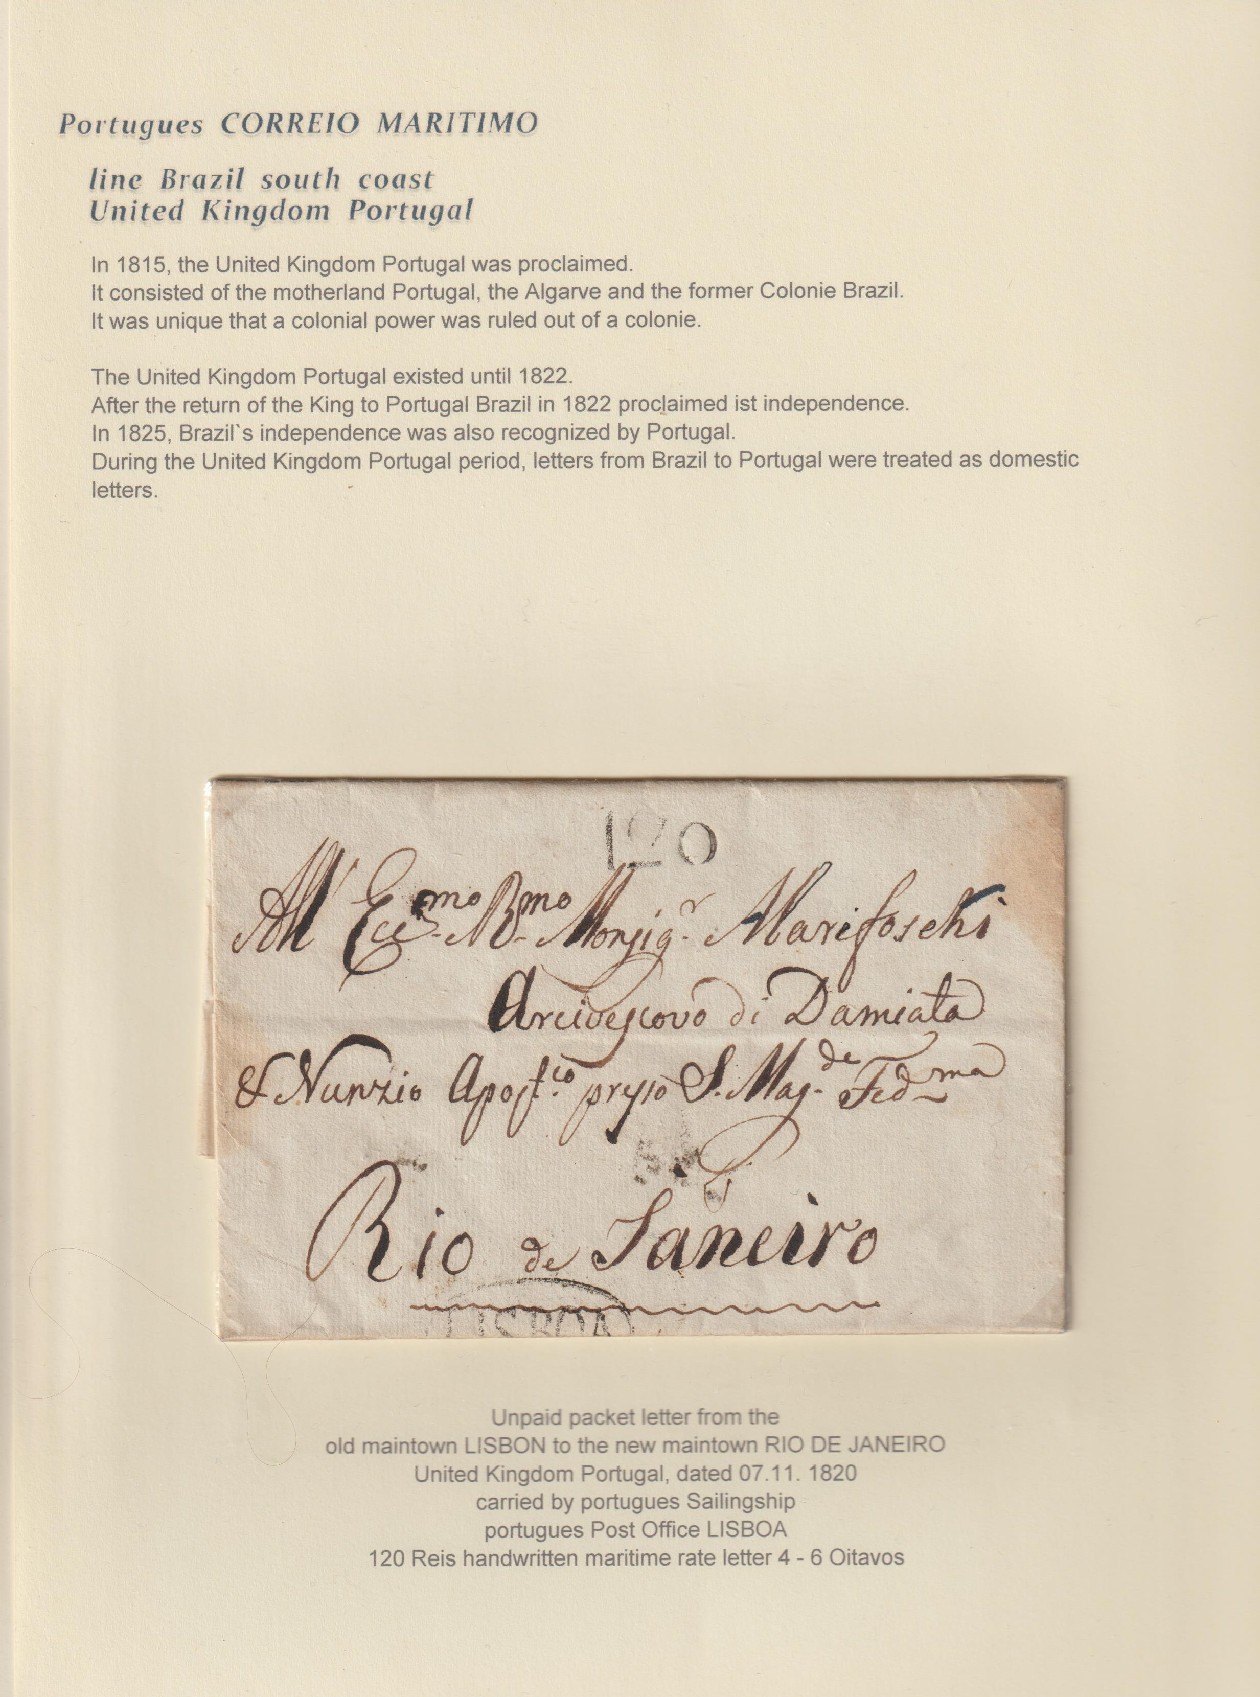 Portugues CORREIO MARITIMO
line Brazil south coast
United Kingdom Portugal
In 1815, the United Kingdom Portugal was proclaimed.
It consisted of the motherland Portugal, the Algarve and the former Colonie Brazil.
It was unique that a colonial power was ruled out of a colonie.
The United Kingdom Portugal existed until 1822.
After the return of the King to Portugal Brazil in 1822 proclaimed ist independence.
In 1825, Brazil`s independence was also recognized by Portugal.
During the United Kingdom Portugal period, letters from Brazil to Portugal were treated as domestic
letters.
120
All' Ecc.mo R.mo Monsig.r Marefoschi
Arcivescovo di Damiata
& Nunzio Apost.co presso S. Mag.de Fed.ma
Rio de Janeiro
LISBOA
Unpaid packet letter from the
old maintown LISBON to the new maintown RIO DE JANEIRO
United Kingdom Portugal, dated 07.11. 1820
carried by portugues Sailingship
portugues Post Office LISBOA
120 Reis handwritten maritime rate letter 4 - 6 Oitavos